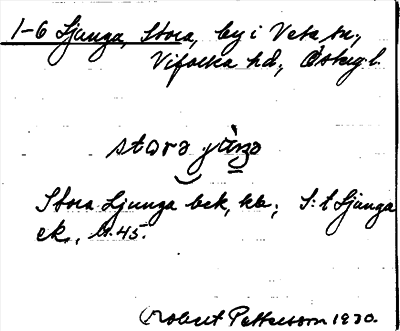 1-6 Ljunga, Stora, by i Veta sn.,
Vifolka hd., Östergl.
stora jùŋa
Stora Ljunga bek, kb; S:t Ljunga
ek., M.45.
Robert Pettersson 1930.